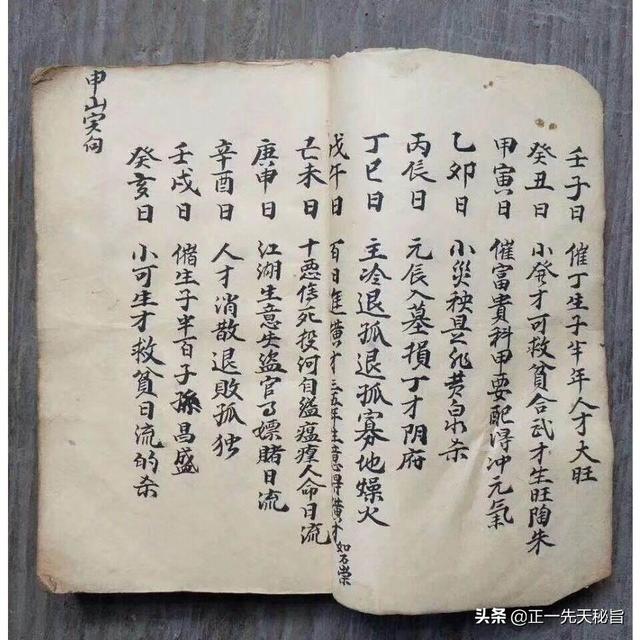 壬子日 催丁生子半年人才大旺
癸丑日 小発才可救貧合武才生旺陶朱
甲寅日 催富貴科甲要配得冲元氣
乙卯日 小災秧是非黄泉杀
丙辰日 元辰入墓損丁才阴府
丁巳日 主冷退孤退孤寡地燥火
戊午日 百日進横才三五年生意得横才如石崇
己未日 十悪信死投河自縊瘟瘴人命日流
庚申日 江湖生意失盗官司嫖賭日流
辛酉日 人才消散退敗孤独
壬戌日 催生子半百子孫昌盛
癸亥日 小可生才救貧日流的杀
申山寅向
头条 @正一先天秘旨